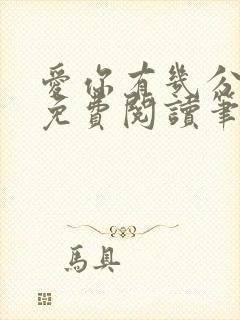 愛你有幾分
免費閱讀筆
馬具